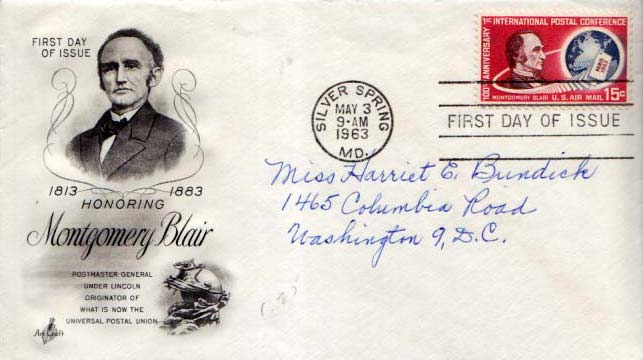 FIRST DAY
OF ISSUE
1813 1883
HONORING
Montgomery Blair
POSTMASTER GENERAL
UNDER LINCOLN
ORIGINATOR OF
WHAT IS NOW THE
UNIVERSAL POSTAL UNION
Art Craft
SILVER SPRING
MAY 3
9-AM
1963
MD.
100TH ANNIVERSARY
1ST INTERNATIONAL POSTAL CONFERENCE
PARIS
1863
MONTGOMERY BLAIR U.S. AIR MAIL 15c
FIRST DAY OF ISSUE
Miss Harriet E. Bundick
1465 Columbia Road
Washington 9, D.C.